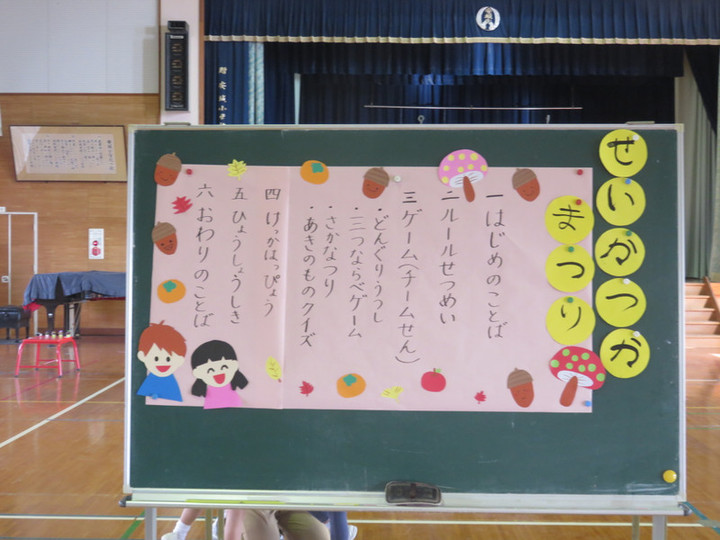 せいかつか
まつり
一 はじめのことば
二 ルールせつめい
三 ゲーム(チームせん)
・どんぐりうつし
・三つならべゲーム
・さかなつり
・あきのものクイズ
四 けっかはっぴょう
五 ひょうしょうしき
六 おわりのことば